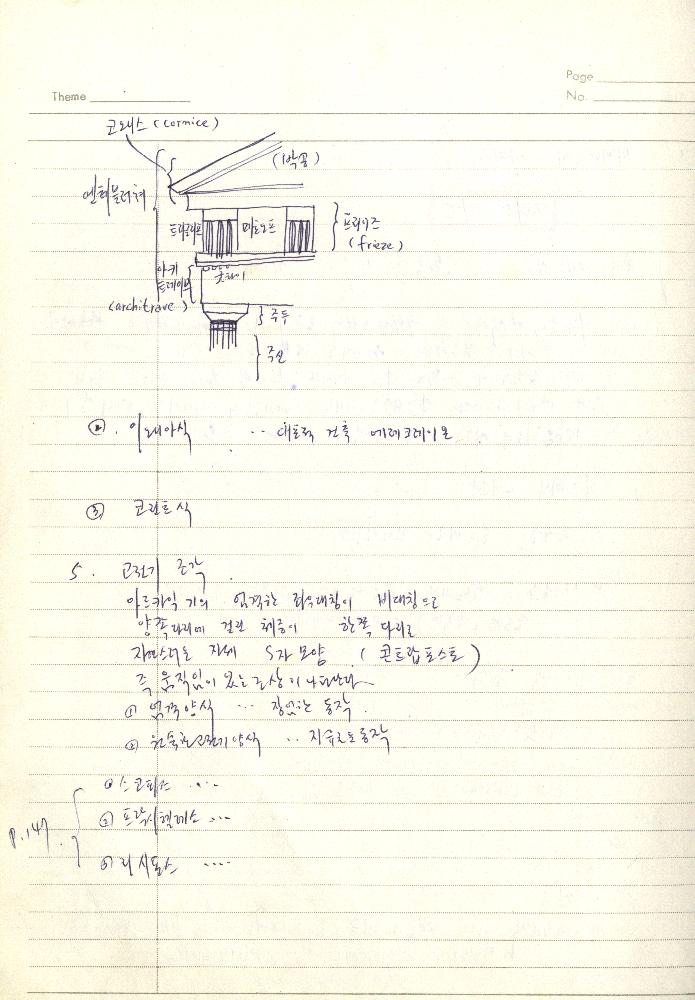 Page
Theme
No.
코니스 (cornice)
(박공)
엔타블러쳐
트리글리프 메토프 프리이즈
(frieze)
아키
트레이브
(architrave)
주두
주신
② . 이오니아식 ·· 대표적 건축 에레크레이온
③ 코린트식
5. 고전기 조각
아르카익 기의 엄격한 좌우대칭이 비대칭으로
양쪽다리에 걸린 체중이 한쪽 다리로
자연스러운 자세 S자 모양 (콘트랍포스토)
즉 움직임이 있는 조상이 나타난다
① 엄격양식 ··· 장엄한 동작.
② 원숙한고전기양식 ·· 자유로운동작
p.147.
① 스코파스 ····
② 프락시텔레스 ···
③ 리시포스 ····